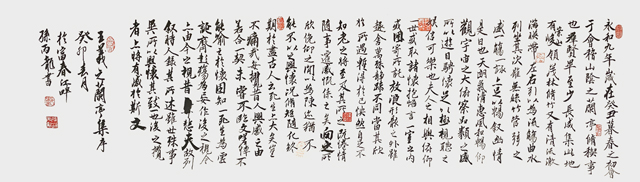 永和九年歲在癸丑暮春之初會
于會稽山陰之蘭亭脩禊事
也群賢畢至少長咸集此地
有崇山峻領茂林脩竹又有清流激
湍暎帶左右引以為流觴曲水
列坐其次雖無絲竹管弦之
盛一觴一詠亦足以暢叙幽情
是日也天朗氣清惠風和暢仰
觀宇宙之大俯察品類之盛
所以遊目騁懷足以極視聽之
娛信可樂也夫人之相與俯仰
一世或取諸懷抱悟言一室之內
或因寄所託放浪形骸之外雖
趣舍萬殊靜躁不同當其欣
於所遇暫得於己快然自足不
知老之將至及其所之既倦情
隨事遷感慨係之矣向之所
欣俛仰之閒以為陳迹猶不
能不以之興懷況脩短隨化終
期於盡古人云死生亦大矣豈
不痛哉每攬昔人興感之由
若合一契未嘗不臨文嗟悼不
能喻之於懷固知一死生為虛
誕齊彭殤為妄作後之視今
亦由今之視昔悲夫故列
叙時人錄其所述雖世殊事
異所以興懷其致一也後之攬
者亦將有感於斯文
王羲之蘭亭集序
癸卯春月
於富春江畔
孫丙龍書